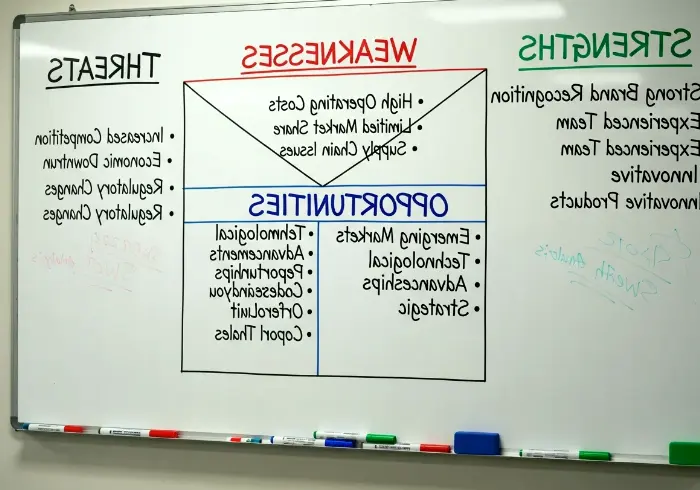 STRENGTHS
Strong Brand Recognition
Experienced Team
Experienced Team
Innovative
Innovative Products
WEAKNESSES
• High Operating Costs
• Limitied Market Share
• Supply Chain Issues
OPPORTUNITIES
• Emerging Markets
• Technological
• Advanceships
• Strategic
• Tehmological
• Advancements
• Peportunhips
• Codeseandyou
• Coporl Thales
THREATS
• Increased Competition
• Economic Downtrun
• Regulatory Changes
• Regulatory Changes